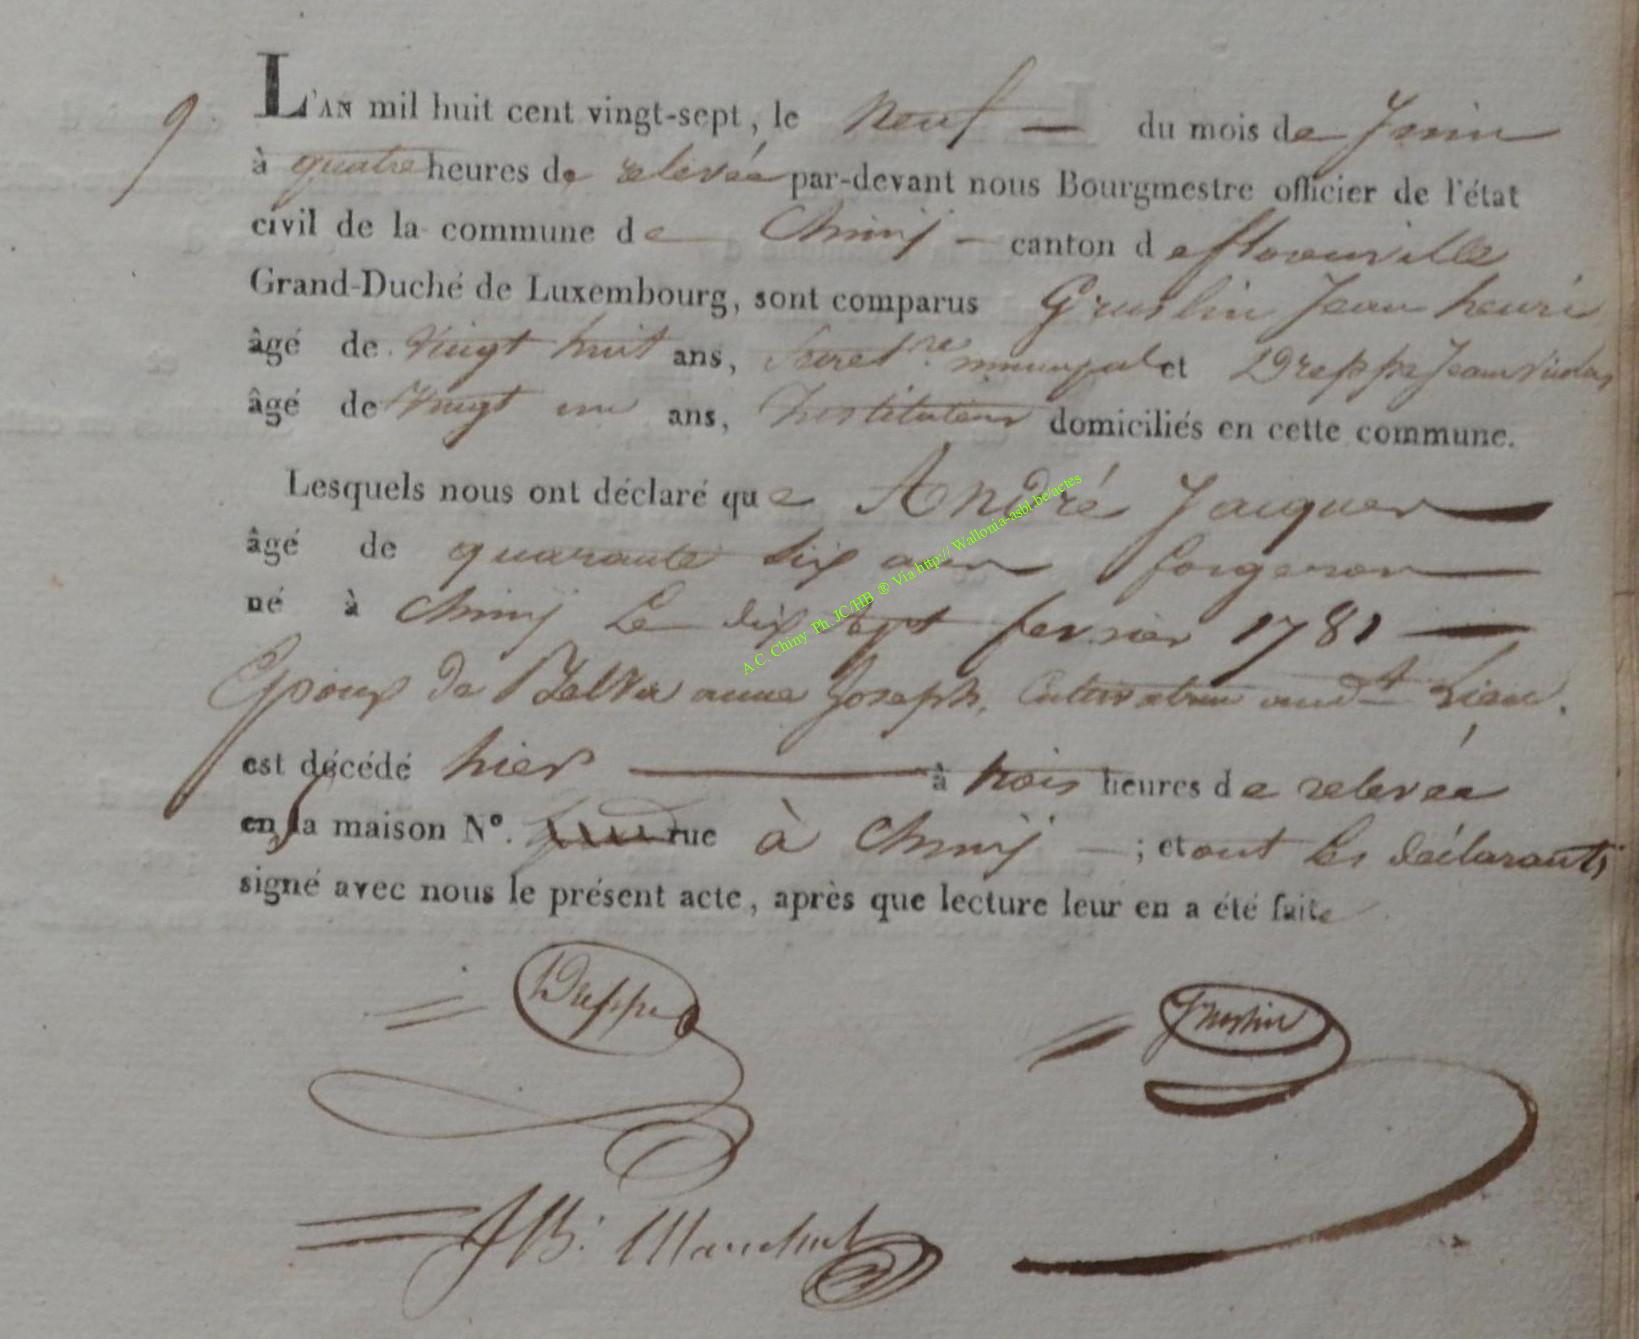 9
L'AN mil huit cent vingt-sept, le neuf — du mois de Juin
à quatre heures de relevée par-devant nous Bourgmestre officier de l'état
civil de la commune de Chinÿ — canton de florenville
Grand-Duché de Luxembourg, sont comparus Gruslin Jean henri
âgé de vingt huit ans, Secret.re municipal et Dreppe Jean Nicolas
âgé de vingt un ans, Instituteur domiciliés en cette commune.
Lesquels nous ont déclaré que André Jacques —
âgé de quarante six ans forgeron —
né à Chinÿ Le dix sept fevrier 1781 —
Epoux de anne Joseph, Cultivatrice aud.t Lieu.
est décédé hier — à trois heures de relevée
en sa maison N°. rue à Chinÿ — ; et ont les déclarants
signé avec nous le présent acte, après que lecture leur en a été faite
Dreppe
Gruslin
JB:
A.C. Chiny Ph. JC/HB ® Via http:// Wallonia-asbl.be/actes